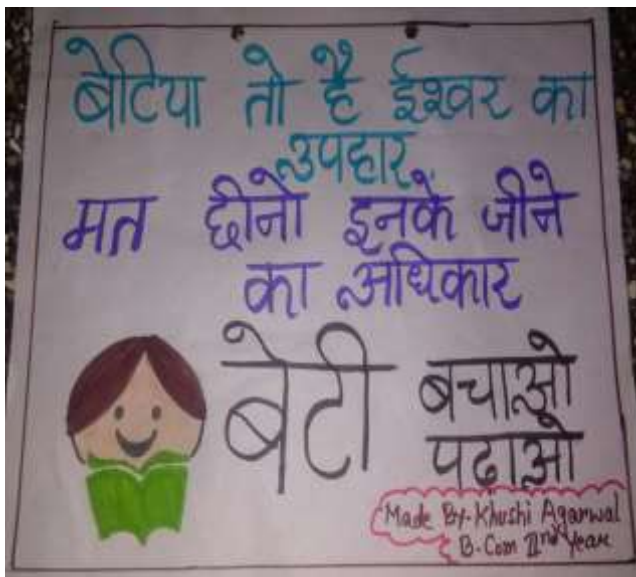 बेटिया तो है ईश्वर का
उपहार
मत छीनो इनके जीने
का अधिकार
बेटी बचाओ
पढाओ
Made By- Khushi Agarwal
B.Com IInd Year